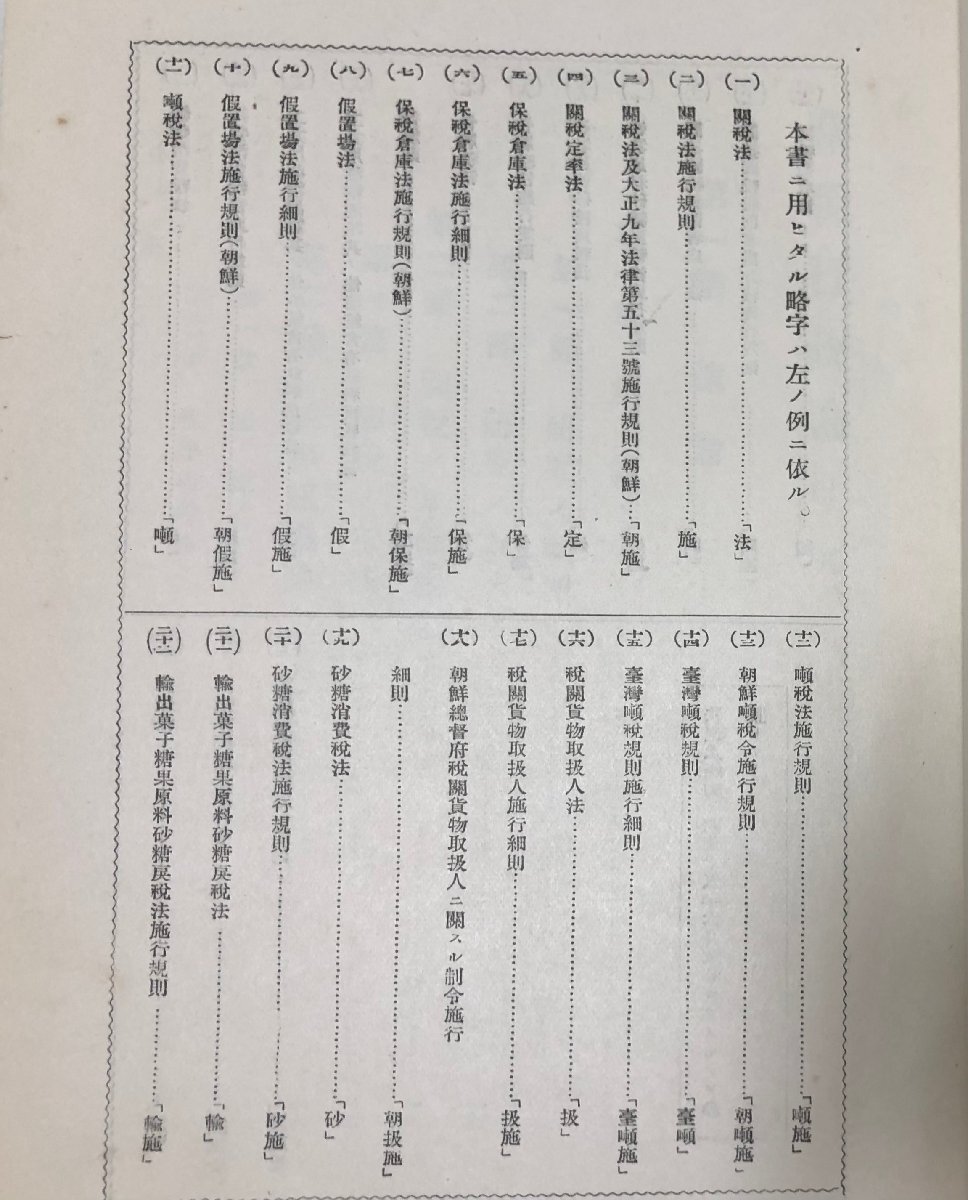 本書ニ用ヒタル略字ハ左ノ例ニ依ル。
(一) 關稅法……「法」
(二) 關稅法施行規則……「施」
(三) 關稅法及大正九年法律第五十三號施行規則(朝鮮)…「朝施」
(四) 關稅定率法……「定」
(五) 保稅倉庫法……「保」
(六) 保稅倉庫法施行細則……「保施」
(七) 保稅倉庫法施行規則(朝鮮)……「朝保施」
(八) 假置場法……「假」
(九) 假置場法施行細則……「假施」
(十) 假置場法施行規則(朝鮮)……「朝假施」
(十一) 噸稅法……「噸」
(十二) 噸稅法施行規則……「噸施」
(十三) 朝鮮噸稅令施行規則……「朝噸施」
(十四) 臺灣噸稅規則……「臺噸」
(十五) 臺灣噸稅規則施行細則……「臺噸施」
(十六) 稅關貨物取扱人法……「扱」
(十七) 稅關貨物取扱人施行細則……「扱施」
(十八) 朝鮮總督府稅關貨物取扱人ニ關スル制令施行
細則……「朝扱施」
(十九) 砂糖消費稅法……「砂」
(二十) 砂糖消費稅法施行規則……「砂施」
(二十一) 輸出菓子糖果原料砂糖戾稅法……「輸」
(二十二) 輸出菓子糖果原料砂糖戾稅法施行規則……「輸施」